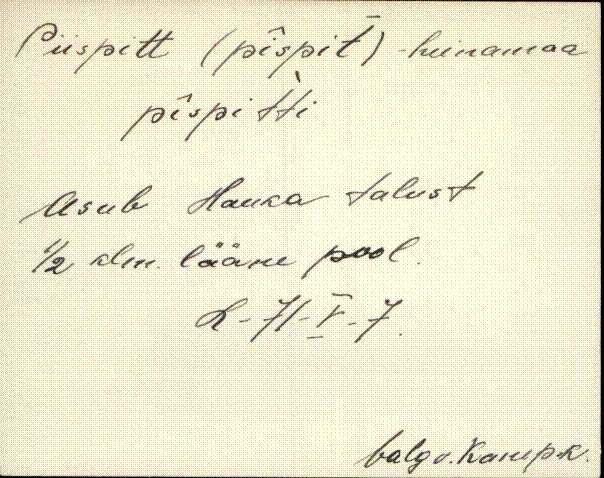 Piispitt (pîspit̄) - heinamaa
pîspìtti
Asub Hauka talust
1/2 klm. lääne pool.
L-71-V-7.
Valg v. Karep k.